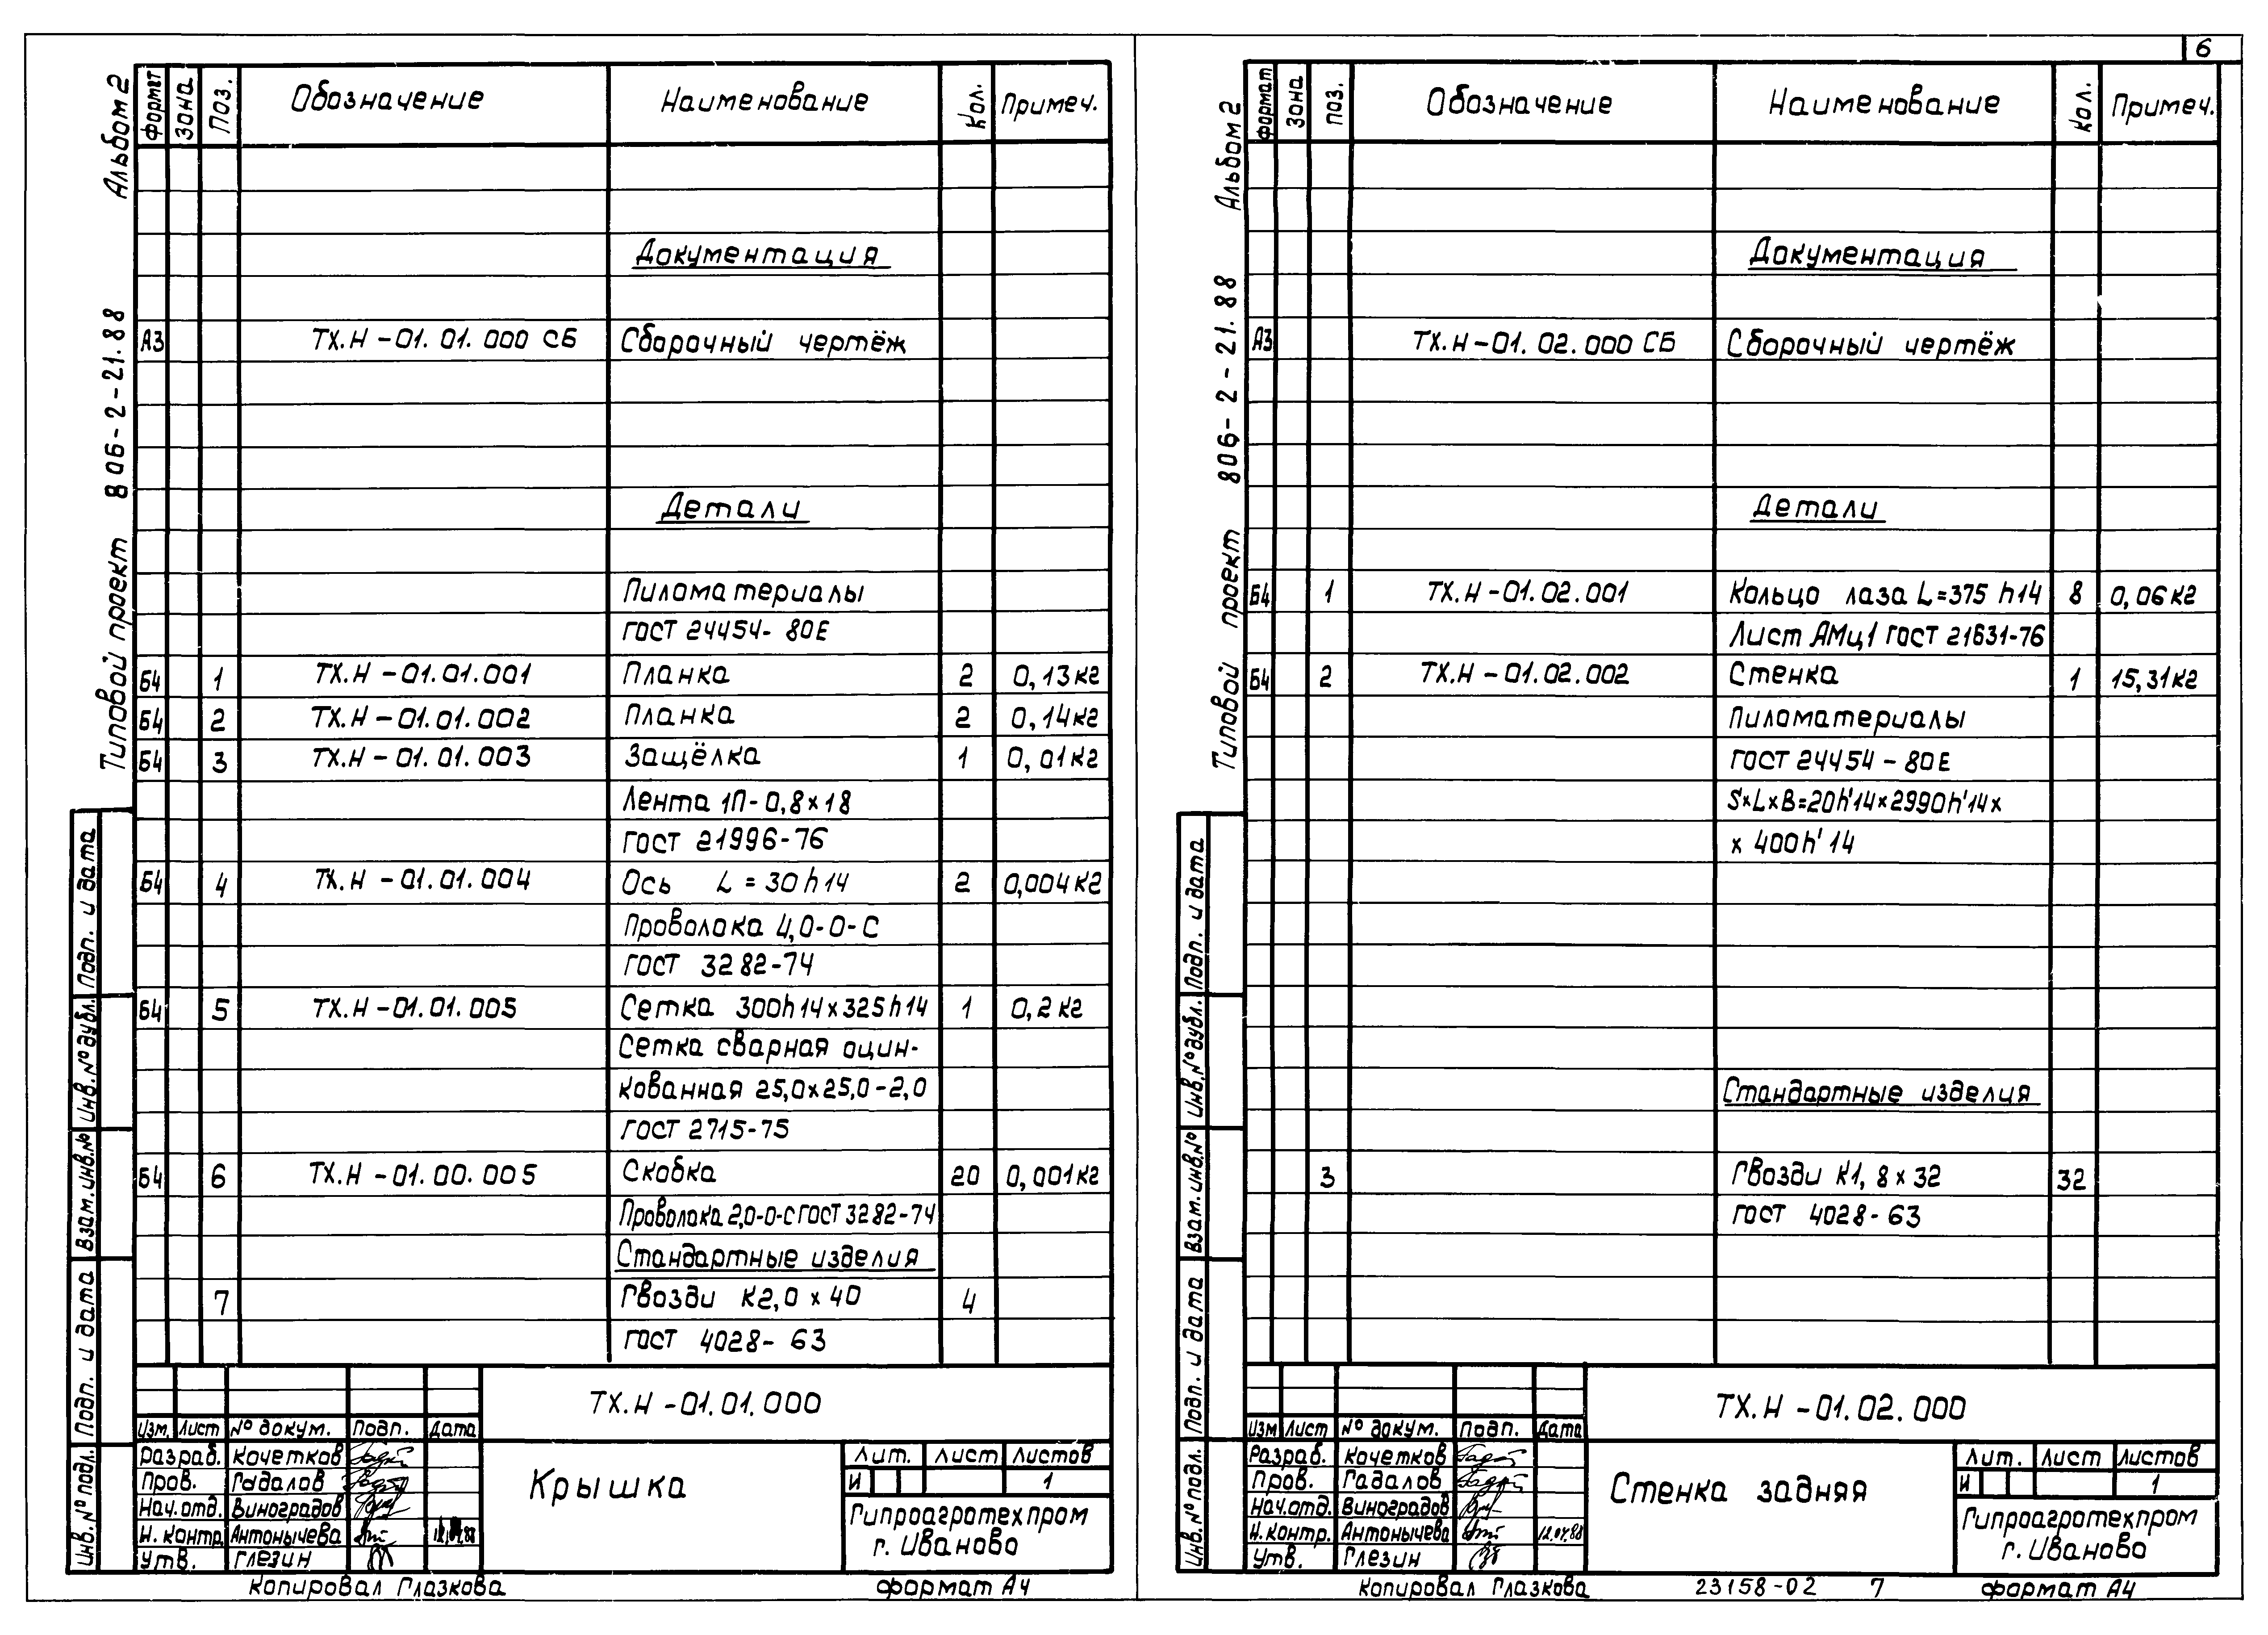 6
Альбом 2
Типовой проект 806-2-21.88
Формат Зона Поз. Обозначение Наименование Кол. Примеч.
Документация
А3 ТХ.Н-01.01.000 СБ Сборочный чертёж
Детали
Пиломатериалы
ГОСТ 24454-80Е
Б4 1 ТХ.Н-01.01.001 Планка 2 0,13кг
Б4 2 ТХ.Н-01.01.002 Планка 2 0,14кг
Б4 3 ТХ.Н-01.01.003 Защёлка 1 0,01кг
Лента 1П-0,8×18
ГОСТ 21996-76
Б4 4 ТХ.Н-01.01.004 Ось L=30h14 2 0,004кг
Проволока 4,0-О-С
ГОСТ 3282-74
Б4 5 ТХ.Н-01.01.005 Сетка 300h14×325h14 1 0,2кг
Сетка сварная оцин-
кованная 25,0×25,0-2,0
ГОСТ 2715-75
Б4 6 ТХ.Н-01.00.005 Скобка 20 0,001кг
Проволока 2,0-О-С ГОСТ 3282-74
Стандартные изделия
7 Гвозди К2,0×40 4
ГОСТ 4028-63
Инв.№подл. Подп. и дата Взам.инв.№ Инв.№дубл. Подп. и дата
ТХ.Н-01.01.000
Изм. Лист № докум. Подп. Дата
Разраб. Кочетков
Пров. Гадалов
Нач.отд. Виноградов
Н.контр. Антонычева
Утв. Глезин
Крышка
Лит. Лист Листов
И 1
Гипроагротехпром
г. Иваново
Копировал Глазкова формат А4
Альбом 2
Типовой проект 806-2-21.88
Формат Зона Поз. Обозначение Наименование Кол. Примеч.
Документация
А3 ТХ.Н-01.02.000 СБ Сборочный чертёж
Детали
Б4 1 ТХ.Н-01.02.001 Кольцо лаза L=375 h14 8 0,06кг
Лист АМц1 ГОСТ 21631-76
Б4 2 ТХ.Н-01.02.002 Стенка 1 15,31кг
Пиломатериалы
ГОСТ 24454-80Е
S×L×B=20h'14×2990h'14×
×400h'14
Стандартные изделия
3 Гвозди К1,8×32 32
ГОСТ 4028-63
Инв.№подл. Подп. и дата Взам.инв.№ Инв.№дубл. Подп. и дата
ТХ.Н-01.02.000
Изм Лист № докум. Подп. Дата
Разраб. Кочетков
Пров. Гадалов
Нач.отд. Виноградов
Н.контр. Антонычева 12.04.88
Утв. Глезин
Стенка задняя
Лит. Лист Листов
И 1
Гипроагротехпром
г. Иваново
Копировал Глазкова 23158-02 7 формат А4